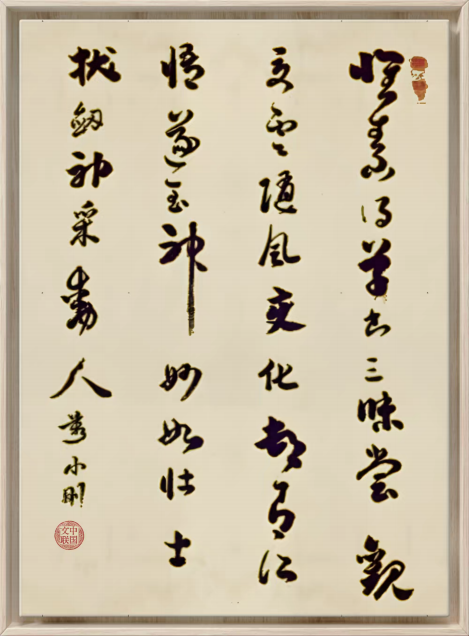 怀素得草书三昧尝观
夏云随风变化顿有所
悟遂至神妙如壮士
拔剑神采动人
小刚
中国文联